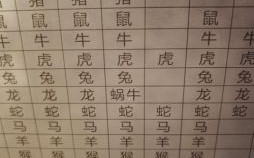 猪 猪 猪
鼠 鼠 鼠 鼠
牛 牛 牛 牛 牛 牛
虎 虎 虎 虎 虎 虎 虎
兔 兔 兔 兔 兔 兔
龙 龙 龙 蜗牛 龙 龙
蛇 蛇 蛇 蛇 蛇 蛇 蛇
马 马 马 马 马 马
羊 羊 羊 羊 羊 羊
猴 猴 猴 猴 猴